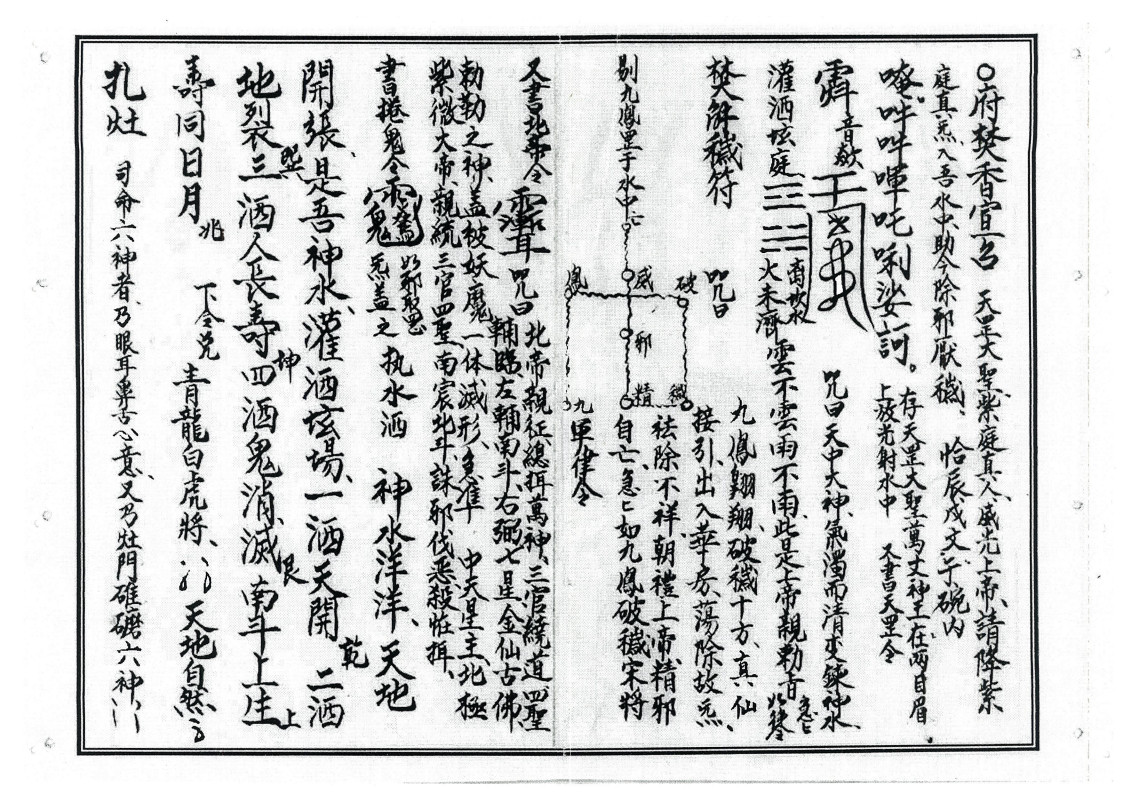 ○府焚香宣召 天罡大聖紫庭真人威光上帝、請降紫
庭真炁入吾水中、助今除邪厭穢、 恰辰戌文于碗内
唵吽吽㖇吒唎娑訶。 存天罡大聖萬丈神王在兩目眉
上放光射水中 又書天罡令
音欲 咒曰天中大神、氣濁而清、 神水、
灌洒垓庭 坎水 火未濟 雲不雲雨不雨、此是上帝親勅音 急匕
焚解穢符 咒曰 九鳳翱翔、破穢十方、真仙
接引、出入華房、蕩除故炁、
祛除不祥、朝禮上帝、精邪
自亡、急匕如九鳳破穢宋將
軍律令
剔九鳳罡于水中亡
破 穢 威 邪 精 鳳 九
又書北帝令 咒曰 北帝親征總捉萬神、三官繞道四聖
輔臨、左輔南斗、右弼七星、金仙古佛
勅勒之神、盖被妖魔一体滅形、急准 中天星主北極
紫微大帝、親統三官四聖南宸北斗、誅邪伐恶殺怪捉、
書捲鬼令 炁盖之 执水洒 神水洋洋、天地
開張、是吾神水、灌洒垓場、一洒天開 乾 二洒
地裂 巽 三洒人長壽 坤 四洒鬼消滅 艮 南斗上生 上
壽同日月 兆 下令兑 青龍白虎將、 天地自然
扎灶 司命六神者、乃眼耳鼻舌心意、又乃灶門碓磨六神